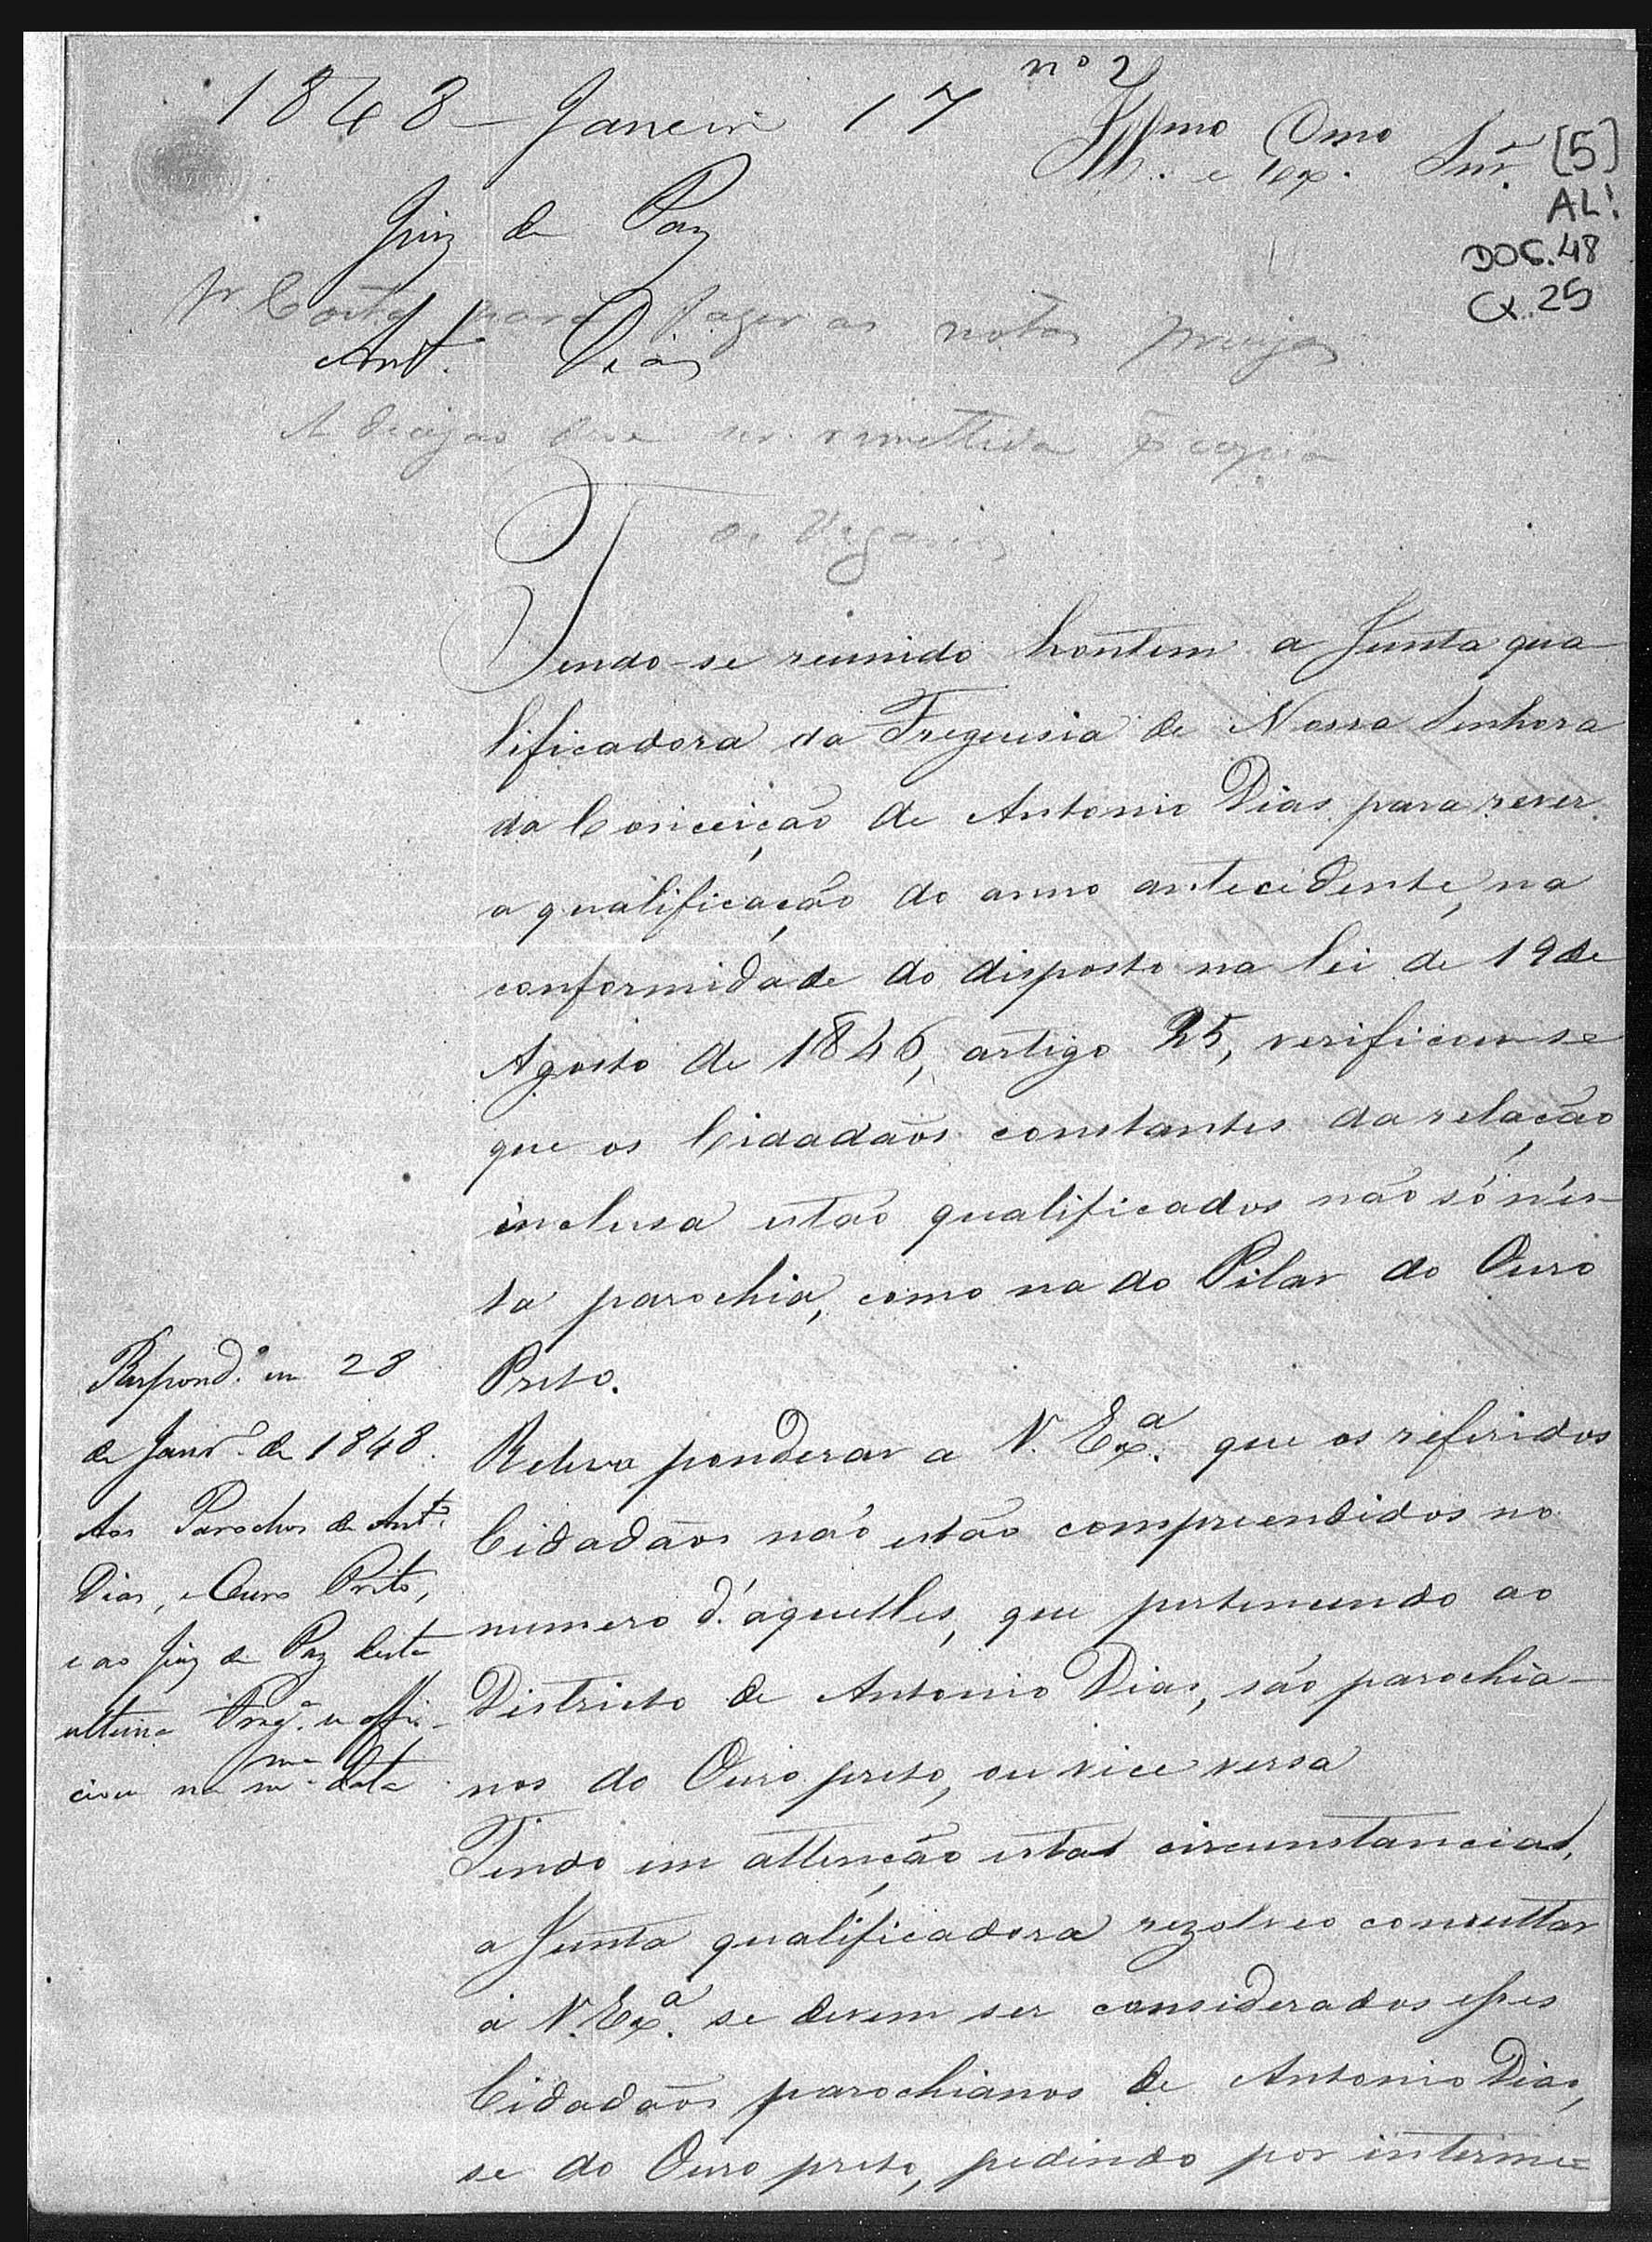 nº 2
1848 - Janeiro 17
Illmo. e Exmo. Snr.
[5]
AL!
DOC. 48
CX. 25
Juiz de Paz
Costa para fazer as notas
Ant.º Dias
A deve ser remettida copia
Tendo-se reunido hontem a Junta qua-
lificadora da Freguesia de Nossa Senhora
da Conceição de Antonio Dias para rever
a qualificação do anno antecedente, na
conformidade do disposto na lei de 19 de
Agosto de 1846, artigo 25, verificou-se
que os Cidadãos constantes da relação
inclusa estão qualificados não só n'es-
ta parochia, como na do Pilar do Ouro
Preto.
Releva ponderar a V. Exª. que os referidos
Cidadãos não estão comprendidos no
numero d'aquelles, que pertencendo ao
Districto de Antonio Dias, são parochia-
nos do Ouro preto, ou vice versa
Tendo em attenção estas circunstancias,
a Junta qualificadora rezolveo consultar
á V. Exª. se devem ser considerados esses
Cidadãos parochianos de Antonio Dias,
se do Ouro preto, pedindo por interme=
Respond.º em 28
de Janrº de 1848.
Aos Parochos de Antº
Dias, e Ouro Preto,
e ao Juiz de Paz desta
ultima Fregª se offi-
ciou na mma data